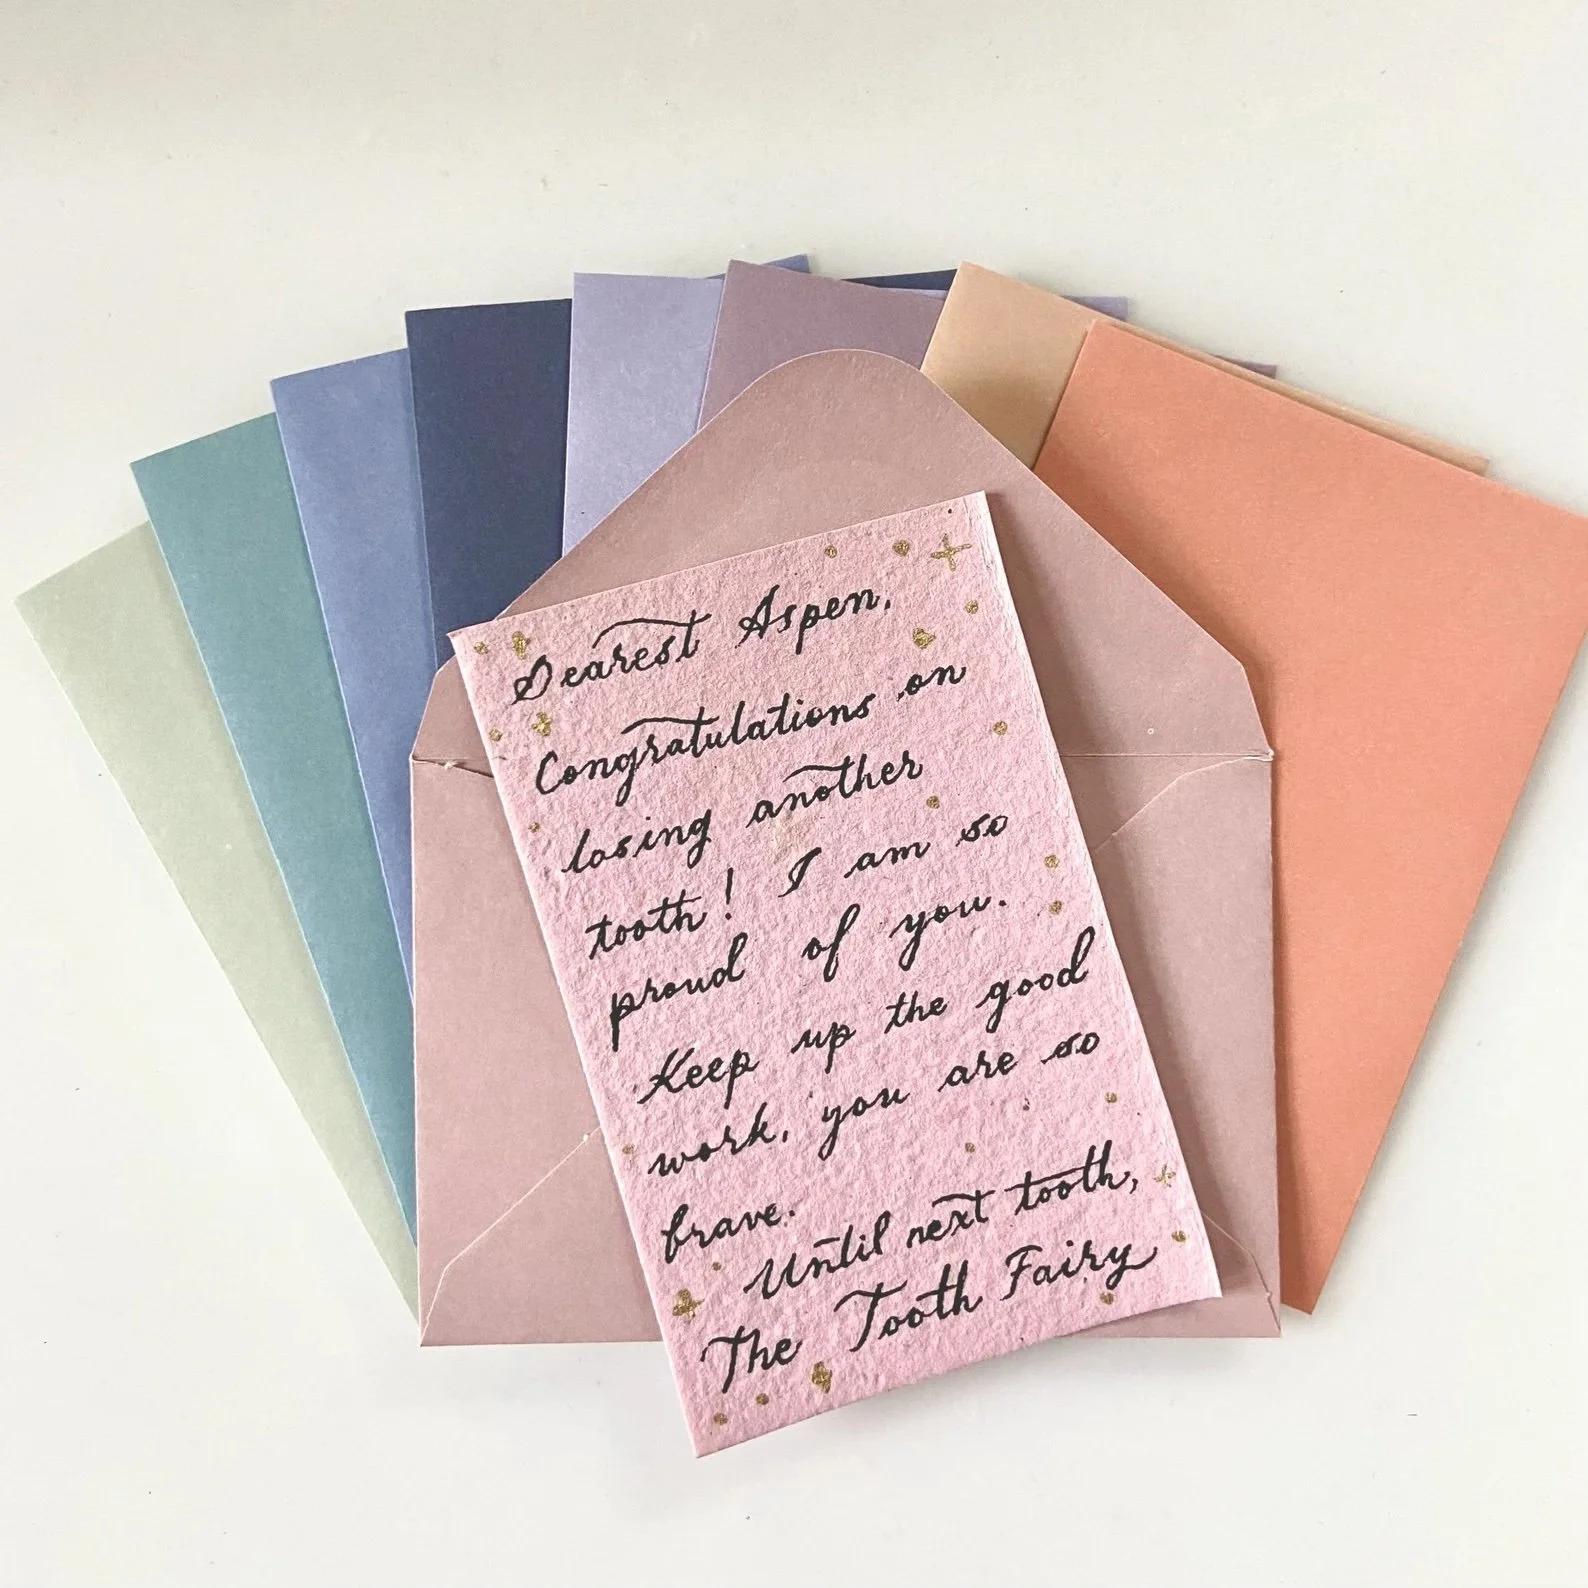 Dearest Aspen,
Congratulations on
losing another
tooth! I am so
proud of you.
Keep up the good
work, you are so
brave.
Until next tooth,
The Tooth Fairy